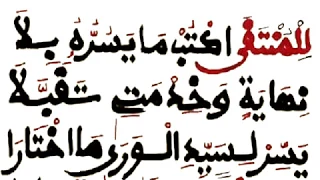 لِلْمُنْتَقَى اكْتُبْ مَا يَسُرُّهُ بِلَا
نِهَايَةٍ وَخِدْمَتِي تَقَبَّلَا
يَسِّرْ لِسَيِّدِ الْوَرَى مَا اخْتَارَا